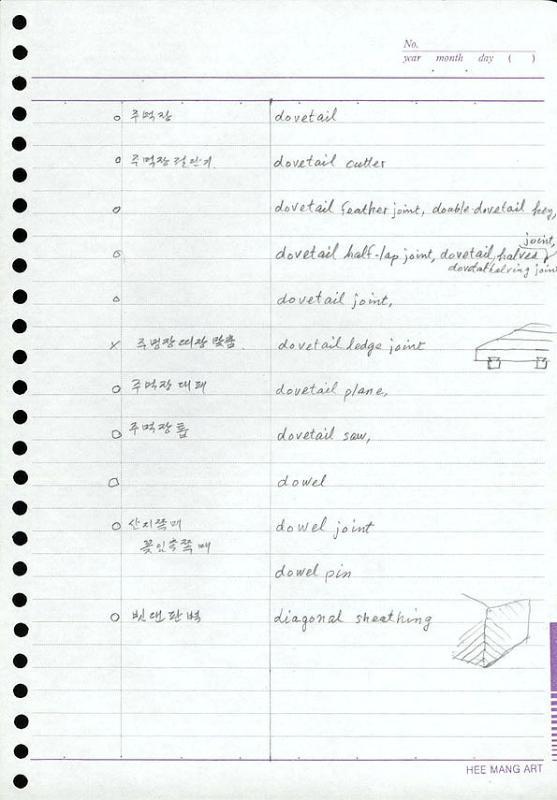 No.
year month day ( )
주먹장 dovetail
주먹장절단기 dovetail cutter
dovetail feather joint, double-dovetail key,
dovetail half-lap joint, dovetail halved joint,
dovetail halving joint
dovetail joint,
주먹장띠장 맞춤 dovetail ledge joint
주먹장대패 dovetail plane,
주먹장톱 dovetail saw,
dowel
산지쪽매 dowel joint
꽂임축쪽매
dowel pin
빗댄판벽 diagonal sheathing
HEE MANG ART